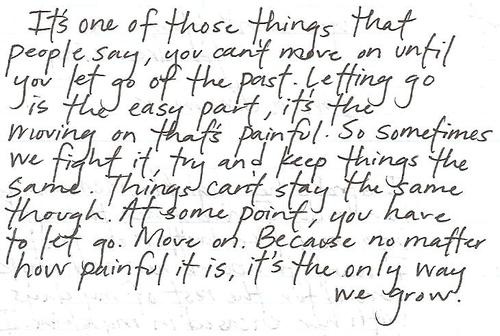 It's one of those things that
people say, you can't move on until
you let go of the past. Letting go
is the easy part, it's the
moving on that's painful. So sometimes
we fight it, try and keep things the
same. Things can't stay the same
though. At some point, you have
to let go. Move on. Because no matter
how painful it is, it's the only way
we grow.